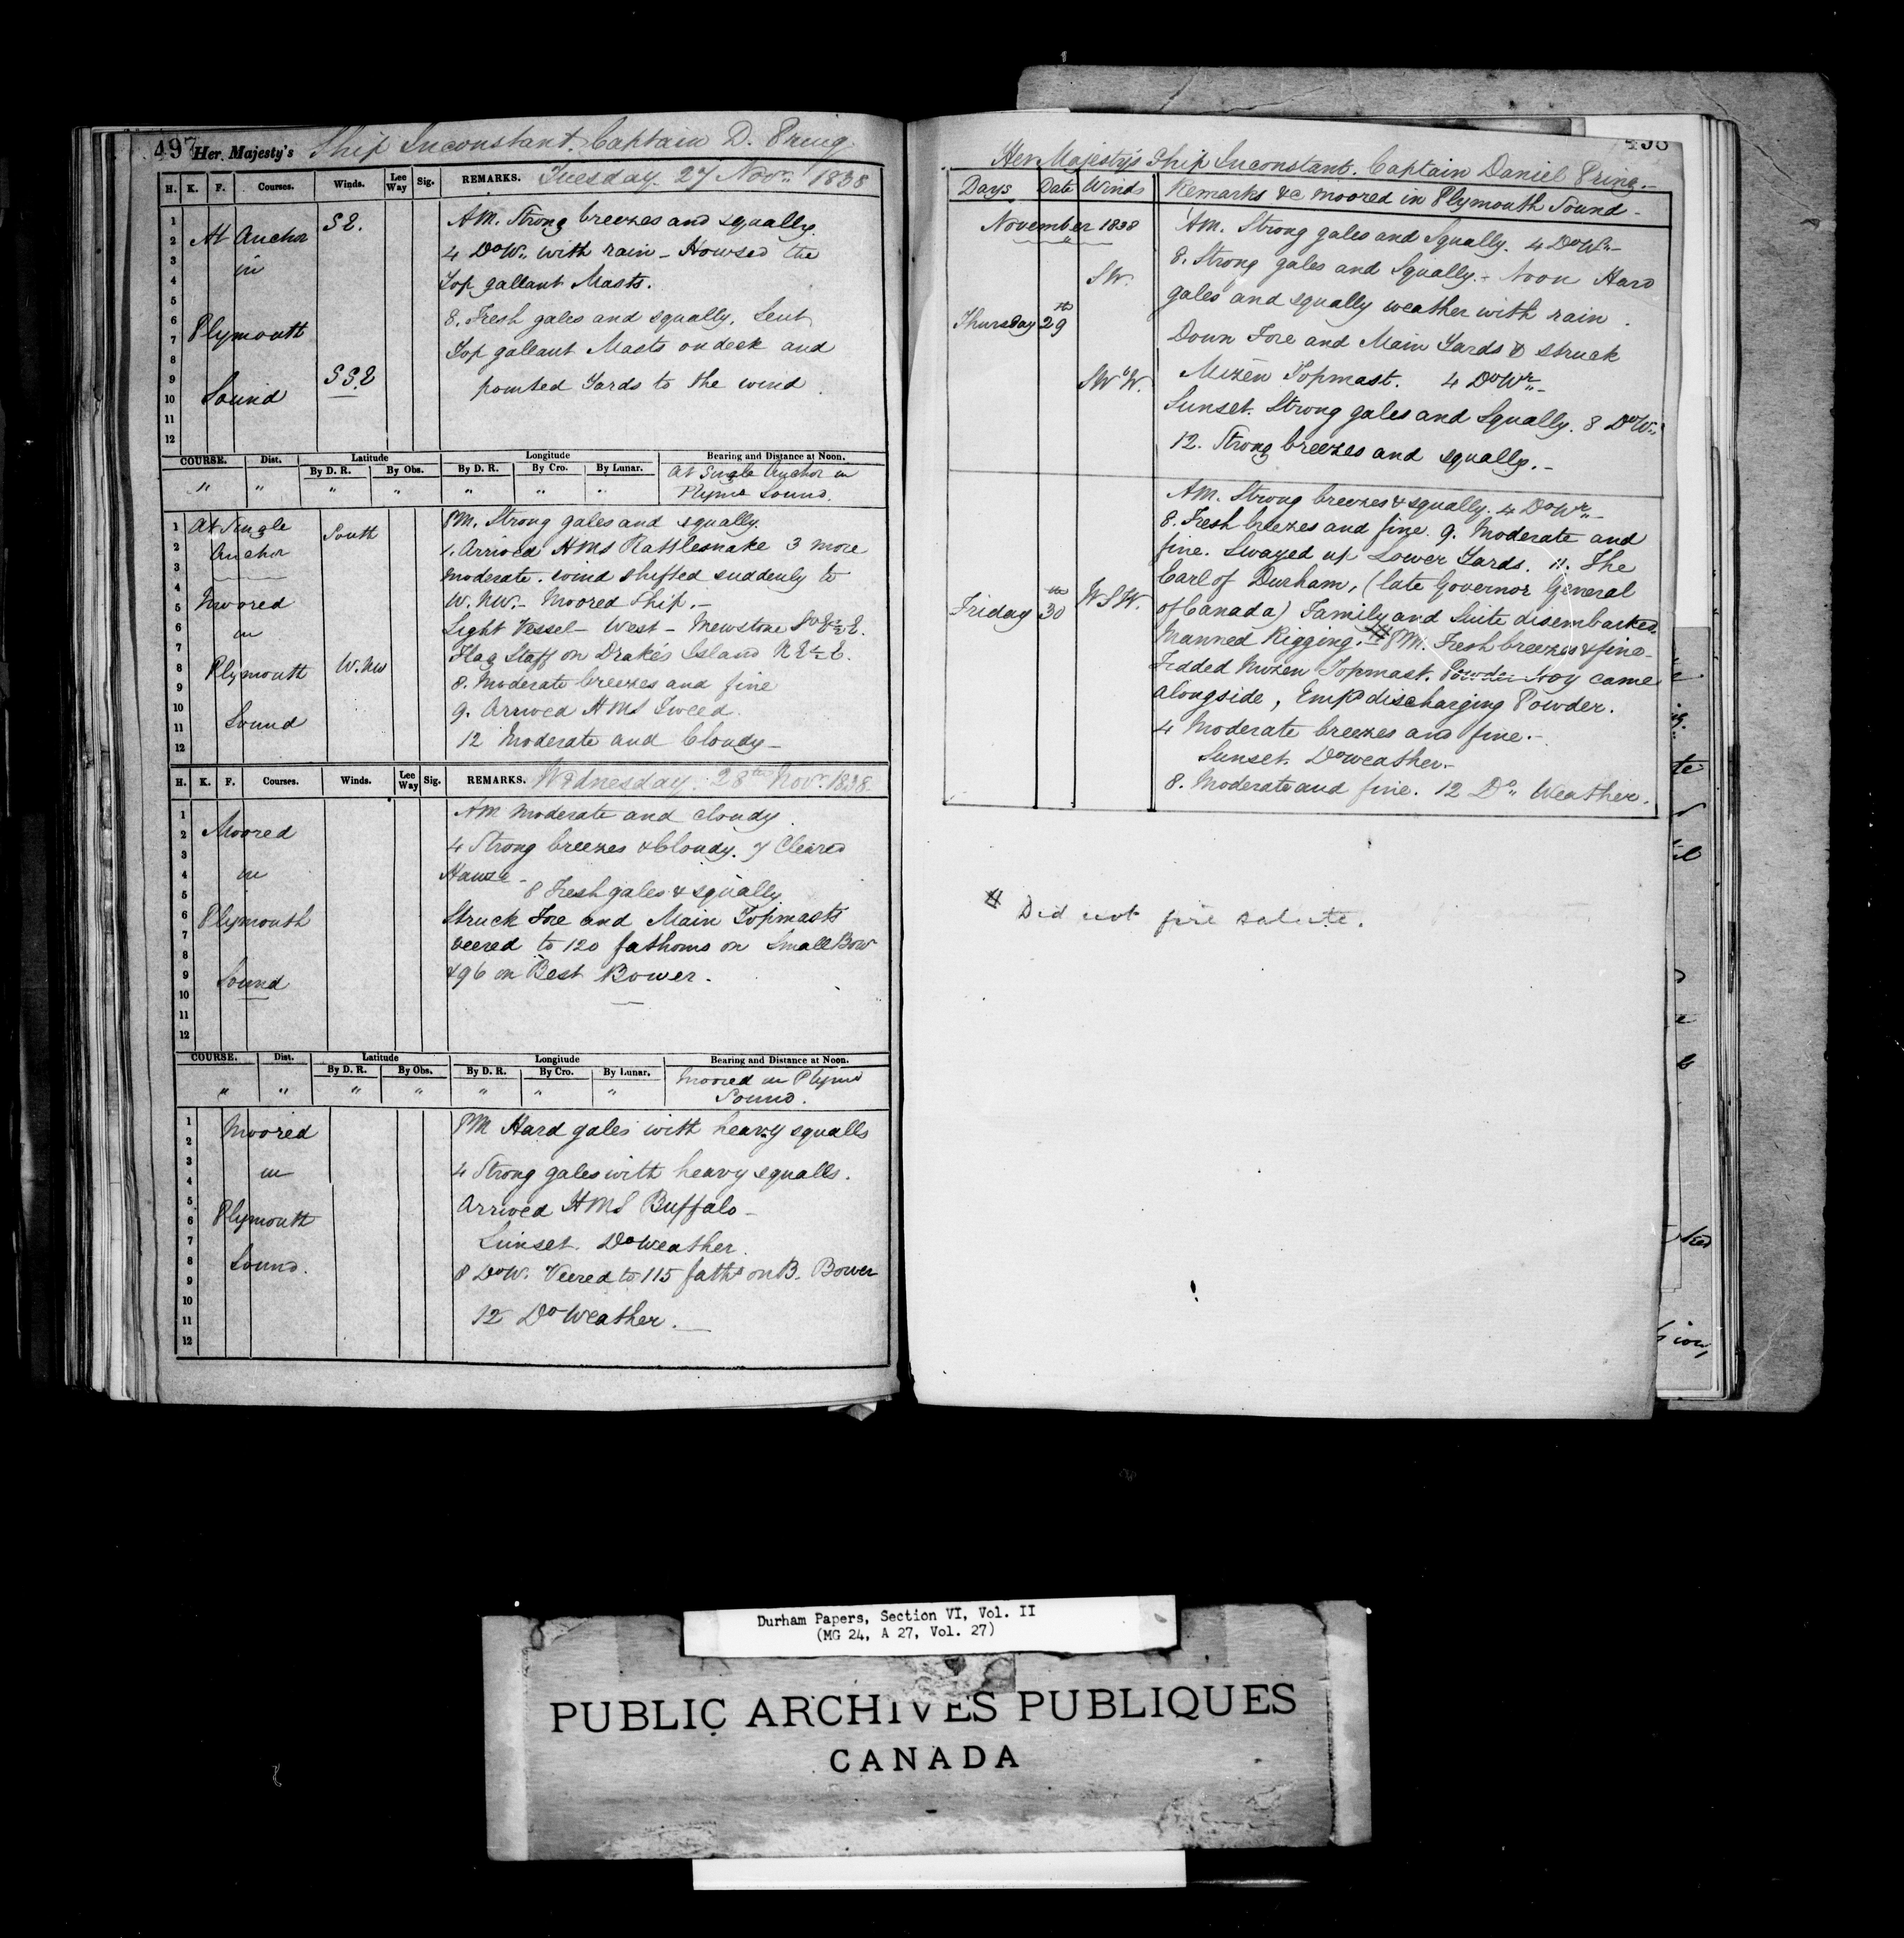 497 Her Majesty's Ship Inconstant. Captain D. Pring.
H. K. F. Courses. Winds. Lee Way Sig. REMARKS. Tuesday. 27 Novr. 1838
1 2 3 4 5 6 7 8 9 10 11 12
At Anchor
in
Plymouth
Sound
SE.
SSE
AM. Strong breezes and squally.
4 Do Wr. with rain - Howsed the
Top gallant Masts.
8. Fresh gales and squally, Sent
Top gallant Masts on deck and
pointed Yards to the wind
COURSE. Dist. Latitude Longitude Bearing and Distance at Noon.
By D. R. By Obs. By D. R. By Cro. By Lunar.
" " " " " " "
At Single Anchor in
Plymo Sound.
1 2 3 4 5 6 7 8 9 10 11 12
At Single
Anchor
Moored
in
Plymouth
Sound
South
W.NW
PM. Strong gales and squally.
1. Arrived HMS Rattlesnake 3 more
moderate. wind shifted suddenly to
W. NW. - Moored Ship. -
Light Vessel - West - Mewstone SoE½E.
Flag Staff on Drake's Island N E½E.
8. Moderate breezes and fine
9. Arrived HMS Tweed.
12 Moderate and Cloudy -
H. K. F. Courses. Winds. Lee Way Sig. REMARKS. Wednesday. 28th Novr. 1838.
1 2 3 4 5 6 7 8 9 10 11 12
Moored
in
Plymouth
Sound
AM Moderate and cloudy
4 Strong breezes & Cloudy. 7 Cleared
Hawse -
8 Fresh gales & squally
Struck Fore and Main Topmasts
veered to 120 fathoms on Small Bowr
& 96 on Best Bower.
COURSE. Dist. Latitude Longitude Bearing and Distance at Noon.
By D. R. By Obs. By D. R. By Cro. By Lunar.
" " " " " " "
Moored in Plymo
Sound.
1 2 3 4 5 6 7 8 9 10 11 12
Moored
in
Plymouth
Sound.
PM Hard gales with heavy squalls
4 Strong gales with heavy squalls.
Arrived HMS Buffalo -
Sunset. Do weather.
8 Do W. Veered to 115 faths on B. Bower
12 Do Weather.
498
Her Majesty's Ship Inconstant. Captain Daniel Pring. -
Days Date Winds Remarks &c Moored in Plymouth Sound -
November 1838
Thursday 29th
SW.
SWbW.
AM. Strong gales and Squally. 4 Do Wr. -
8. Strong gales and Squally. - Noon Hard
gales and squally weather with rain.
Down Fore and Main Yards & struck
Mizen Topmast. 4 Do Wr. -
Sunset. Strong gales and Squally. 8 Do Wr.
12. Strong breezes and squally. -
Friday 30th
WSW.
AM. Strong breezes & squally. 4 Do Wr. -
8. Fresh breezes and fine. 9. Moderate and
fine. Swayed up Lower Yards. 11. The
Earl of Durham, (late Governor General
of Canada) Family and Suite disembarked.
Manned Rigging. # PM. Fresh breezes & fine -
Fidded Mizen Topmast. Powder Hoy came
alongside, Empd discharging Powder.
4 Moderate breezes and fine. -
Sunset. Do weather. -
8. Moderate and fine. 12 Do Weather.
# Did not fire salute.
Durham Papers, Section VI, Vol. II
(MG 24, A 27, Vol. 27)
PUBLIC ARCHIVES PUBLIQUES
CANADA